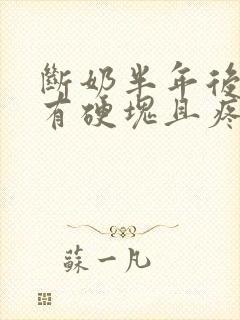 斷奶半年後
有硬塊且疼
蘇一凡